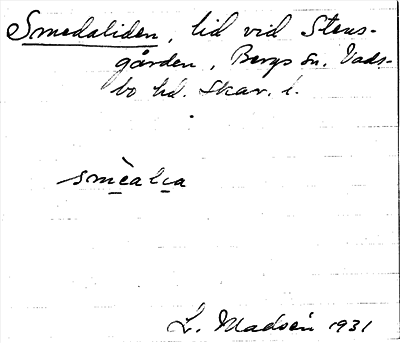 Smedaliden, lid vid Stens-
gården, Bergs sn. Vads-
bo hd. Skar. l.
smèalia
L. Madsén 1931